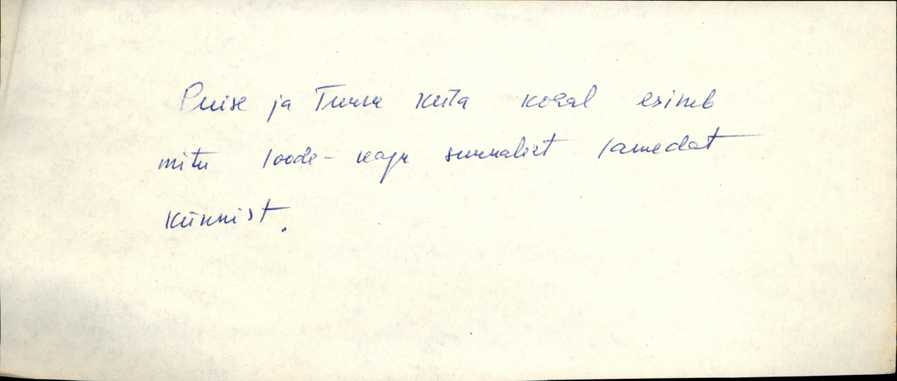 Puise ja Tuuru küla kohal esineb
mitu loode-kagu suunalist lamedat
künnist.